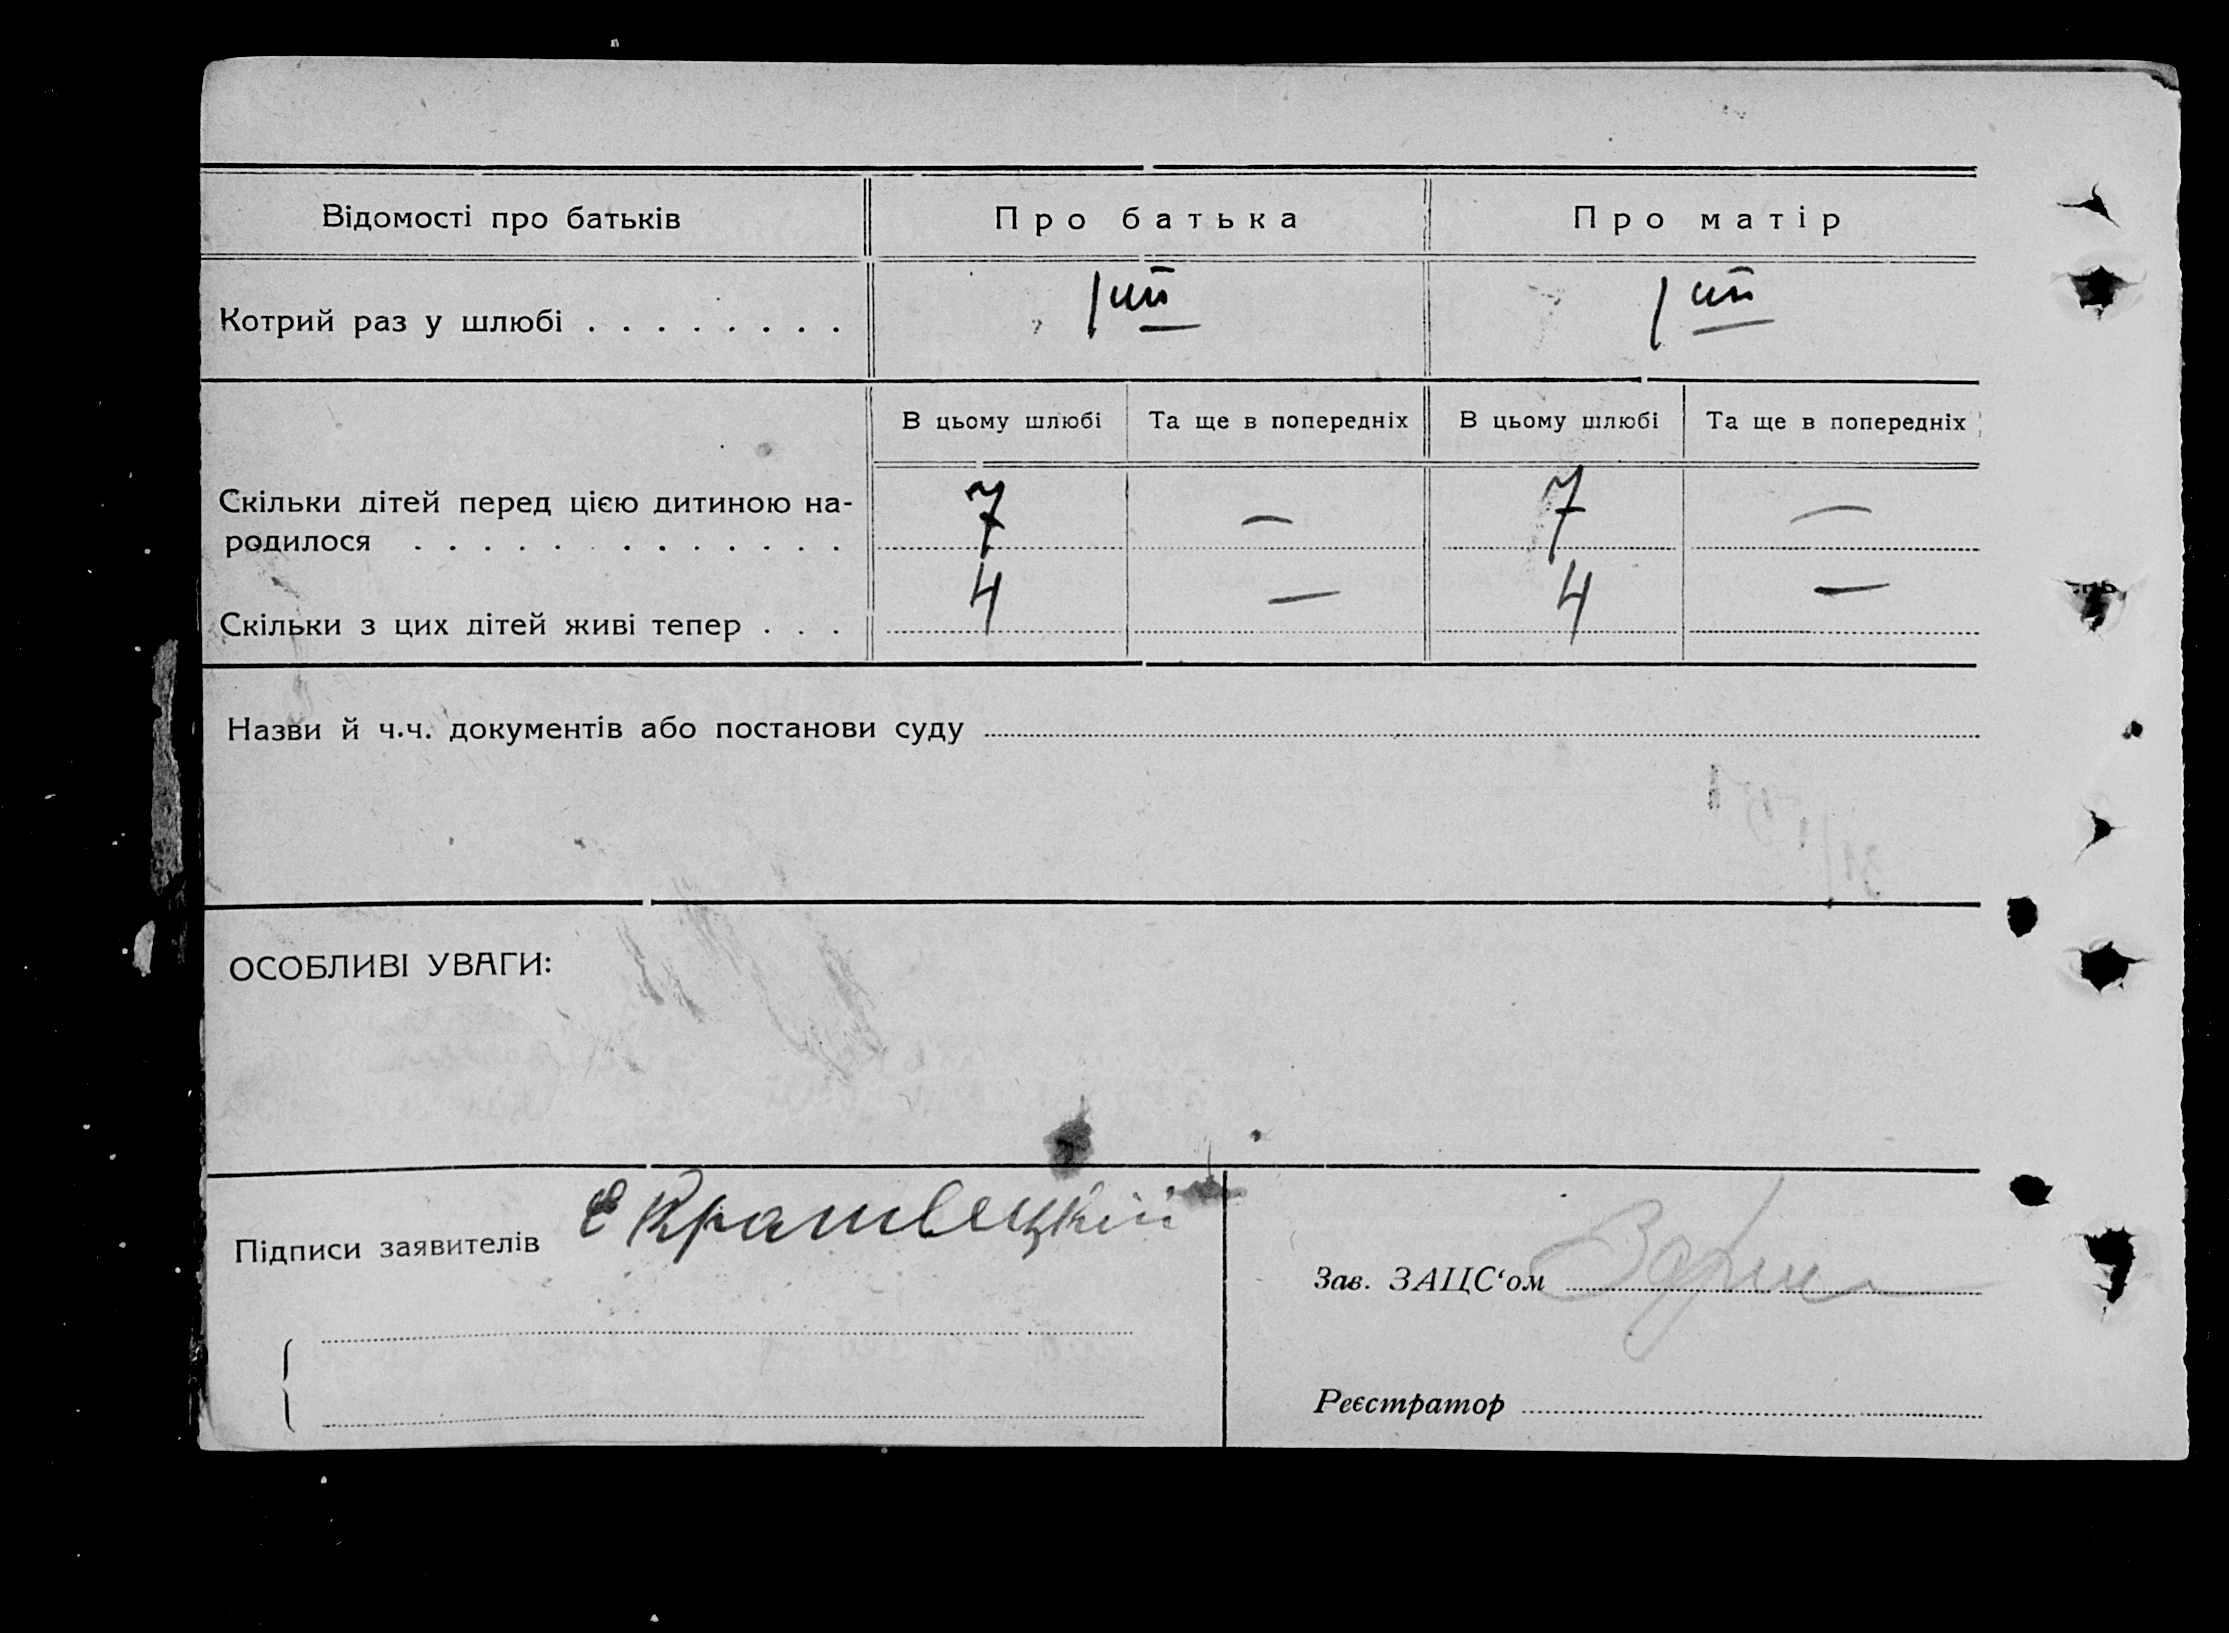 Відомості про батьків Про батька Про матір
Котрий раз у шлюбі . . . . . . . . 1ий 1ий
В цьому шлюбі Та ще в попередніх В цьому шлюбі Та ще в попередніх
Скільки дітей перед цією дитиною на-
родилося . . . . . . . . . . . . 7 — 7 —
Скільки з цих дітей живі тепер . . . 4 — 4 —
Назви й ч.ч. документів або постанови суду
ОСОБЛИВІ УВАГИ:
Підписи заявителів
Зав. ЗАЦС‘ом
Реєстратор